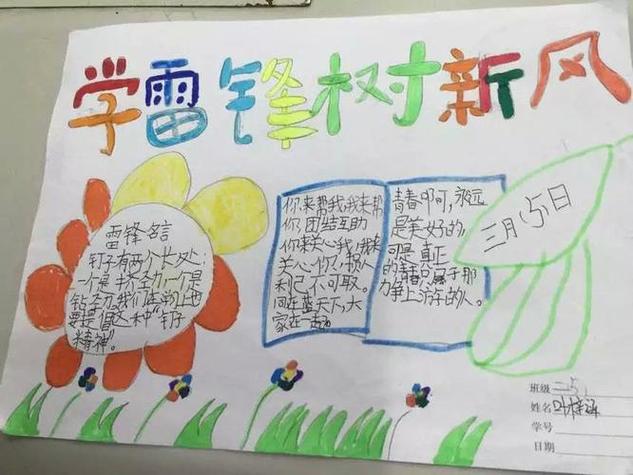 学雷锋树新风
雷锋名言
钉子有两个长处:
一个是挤劲,一个是
钻劲,我们在学习上也
要提倡这种"钉子
精神"。
你来帮我,我来帮
你,团结互助
你来关心我,我来
关心你,损人
利己不可取。
同在蓝天下,大
家在一起
青春啊,永远
是美好的,
可是真正
的青春只属于那
力争上游的人。
三月15日
班级 二5
姓名 叶梓涵
学号
日期